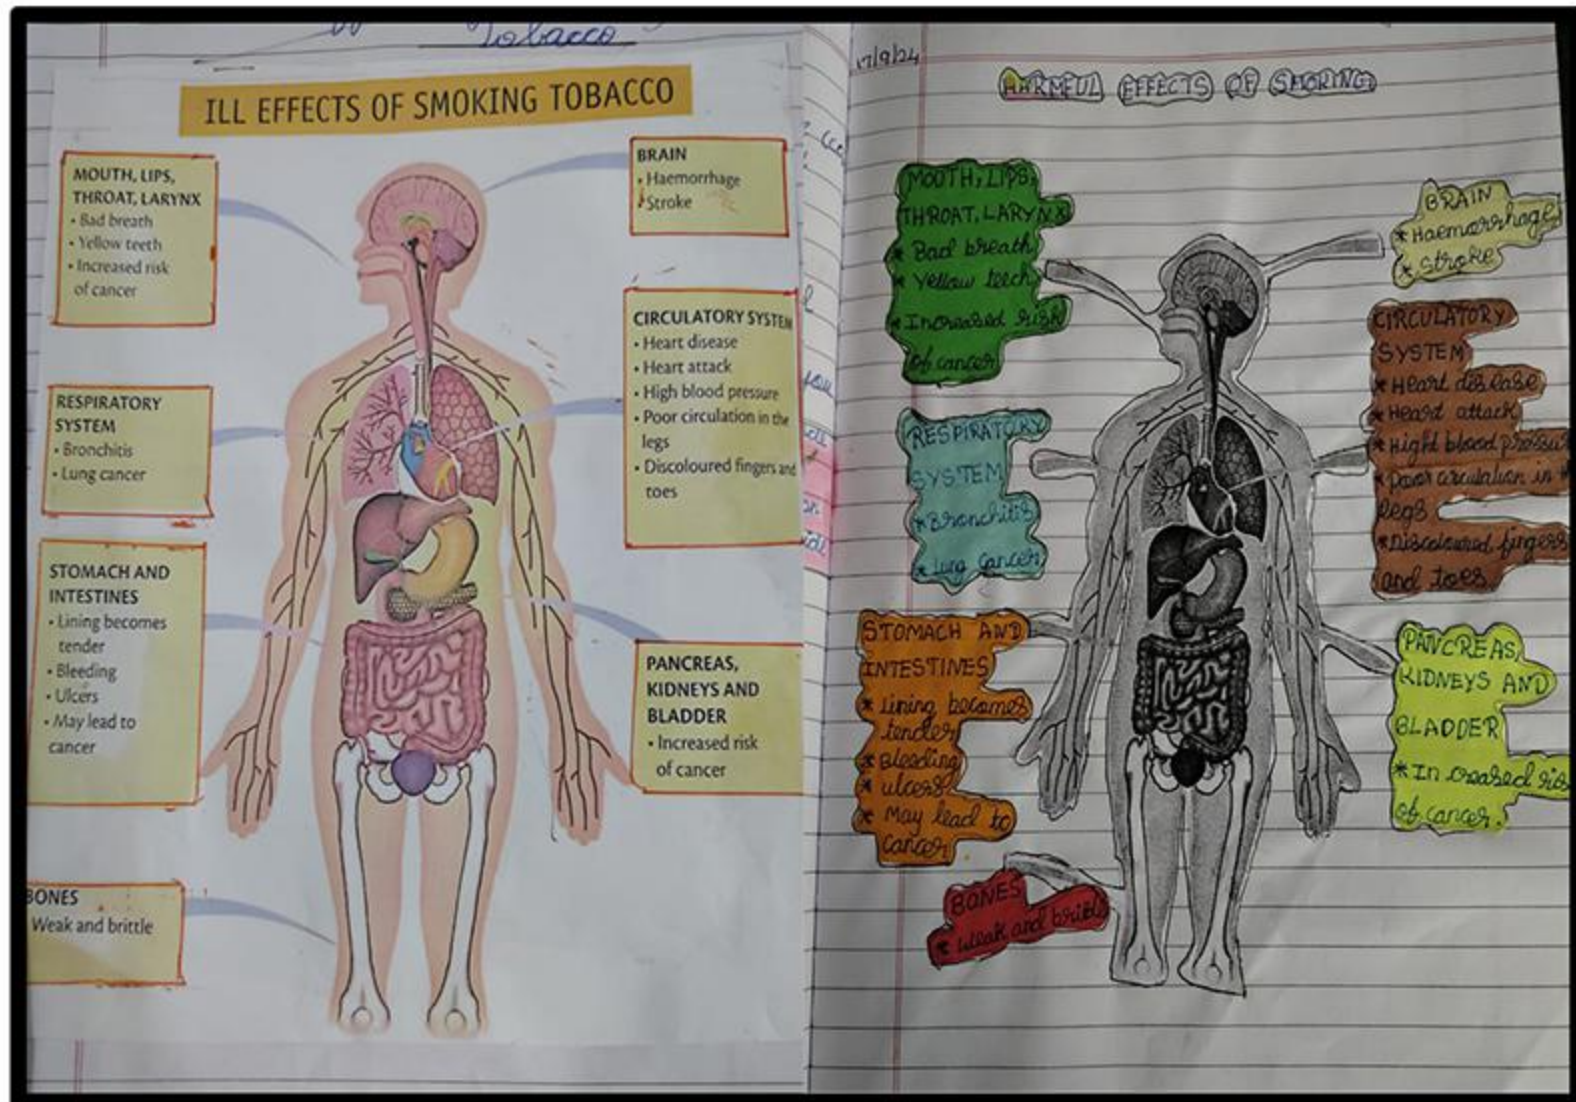 Tobacco
ILL EFFECTS OF SMOKING TOBACCO
MOUTH, LIPS,
THROAT, LARYNX
• Bad breath
• Yellow teeth
• Increased risk
of cancer
RESPIRATORY
SYSTEM
• Bronchitis
• Lung cancer
STOMACH AND
INTESTINES
• Lining becomes
tender
• Bleeding
• Ulcers
• May lead to
cancer
BONES
Weak and brittle
BRAIN
• Haemorrhage
• Stroke
CIRCULATORY SYSTEM
• Heart disease
• Heart attack
• High blood pressure
• Poor circulation in the
legs
• Discoloured fingers and
toes
PANCREAS,
KIDNEYS AND
BLADDER
• Increased risk
of cancer
17/9/24
HARMFUL EFFECTS OF SMOKING
MOUTH, LIPS,
THROAT, LARYNX
* Bad breath
* Yellow teeth
* Increased risk
of cancer
RESPIRATORY
SYSTEM
* Bronchitis
* Lung cancer
STOMACH AND
INTESTINES
* Lining becomes
tender
* Bleeding
* ulcers
* May lead to
cancer
BONES
* Weak and
BRAIN
* Haemorrhage
* Stroke
CIRCULATORY
SYSTEM
* Heart disease
* Heart attack
* Hight blood
* Poor circulation in
legs
* Discoloured fingers
and toes
PANCREAS,
KIDNEYS AND
BLADDER
* In creased
of cancer.